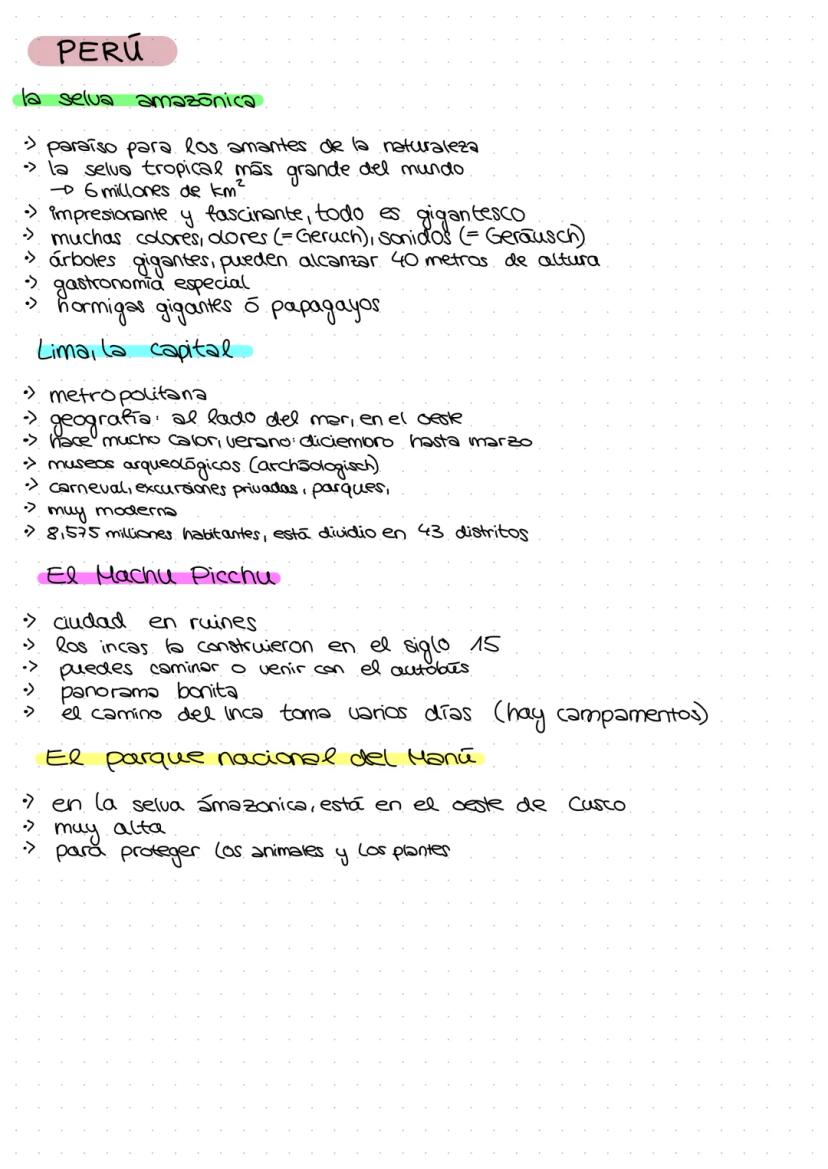 PERÚ
la selva amazónica
·> paraíso para los amantes de la naturaleza
·> la selva tropical más grande del mundo
→ 6 millones de km²
·> impresionante y fascinante, todo es gigantesco
·> muchas colores, olores (=Geruch), sonidos (= Geräusch)
·> árboles gigantes, pueden alcanzar 40 metros de altura
·> gastronomía especial
·> hormigas gigantes ó papagayos
Lima, la capital
·> metropolitana
·> geografía: al lado del mar, en el oeste
·> hace mucho calor, verano: diciembro hasta marzo
·> museos arqueológicos (archäologisch)
·> carneval, excursiones privadas, parques,
·> muy moderna
·> 8,575 milliones habitantes, está dividio en 43 distritos
El Machu Picchu
·> ciudad en ruines
·> los incas la construieron en el siglo 15
·> puedes caminar o venir con el autobús
·> panorama bonita
·> el camino del Inca toma varios días (hay campamentos)
El parque nacional del Manú
·> en la selva ámazonica, está en el oeste de Cusco
·> muy alta
·> para proteger los animales y los plantes